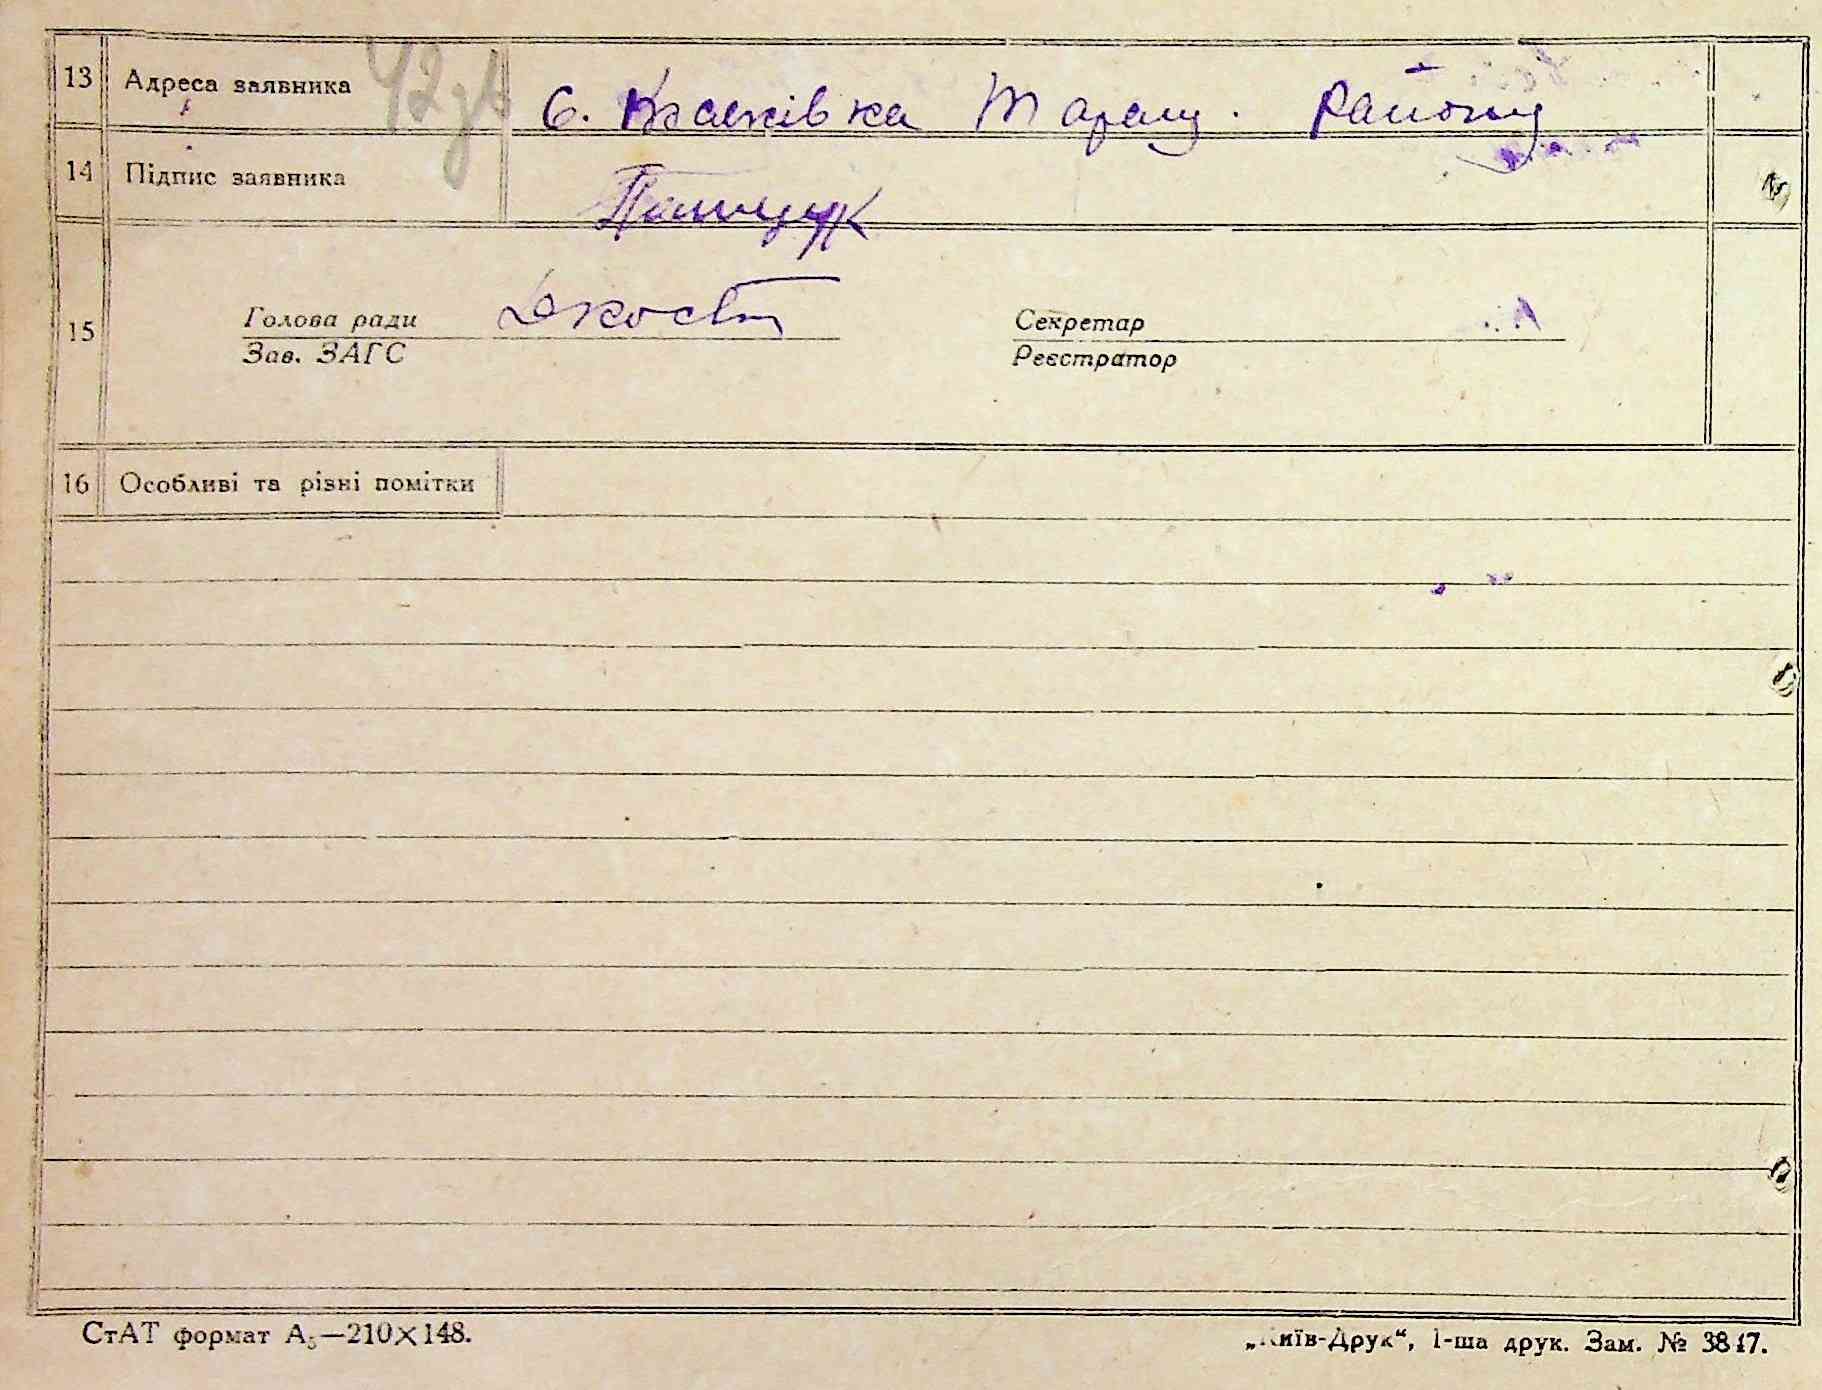 13 Адреса заявника 42 зв с. Кислівка Таращ. району
14 Підпис заявника Пащук
15 Голова ради
Зав. ЗАГС
Секретар
Реєстратор
16 Особливі та різні помітки
СтАТ формат А5—210×148.
„Київ-Друк“, 1-ша друк. Зам. № 3847.